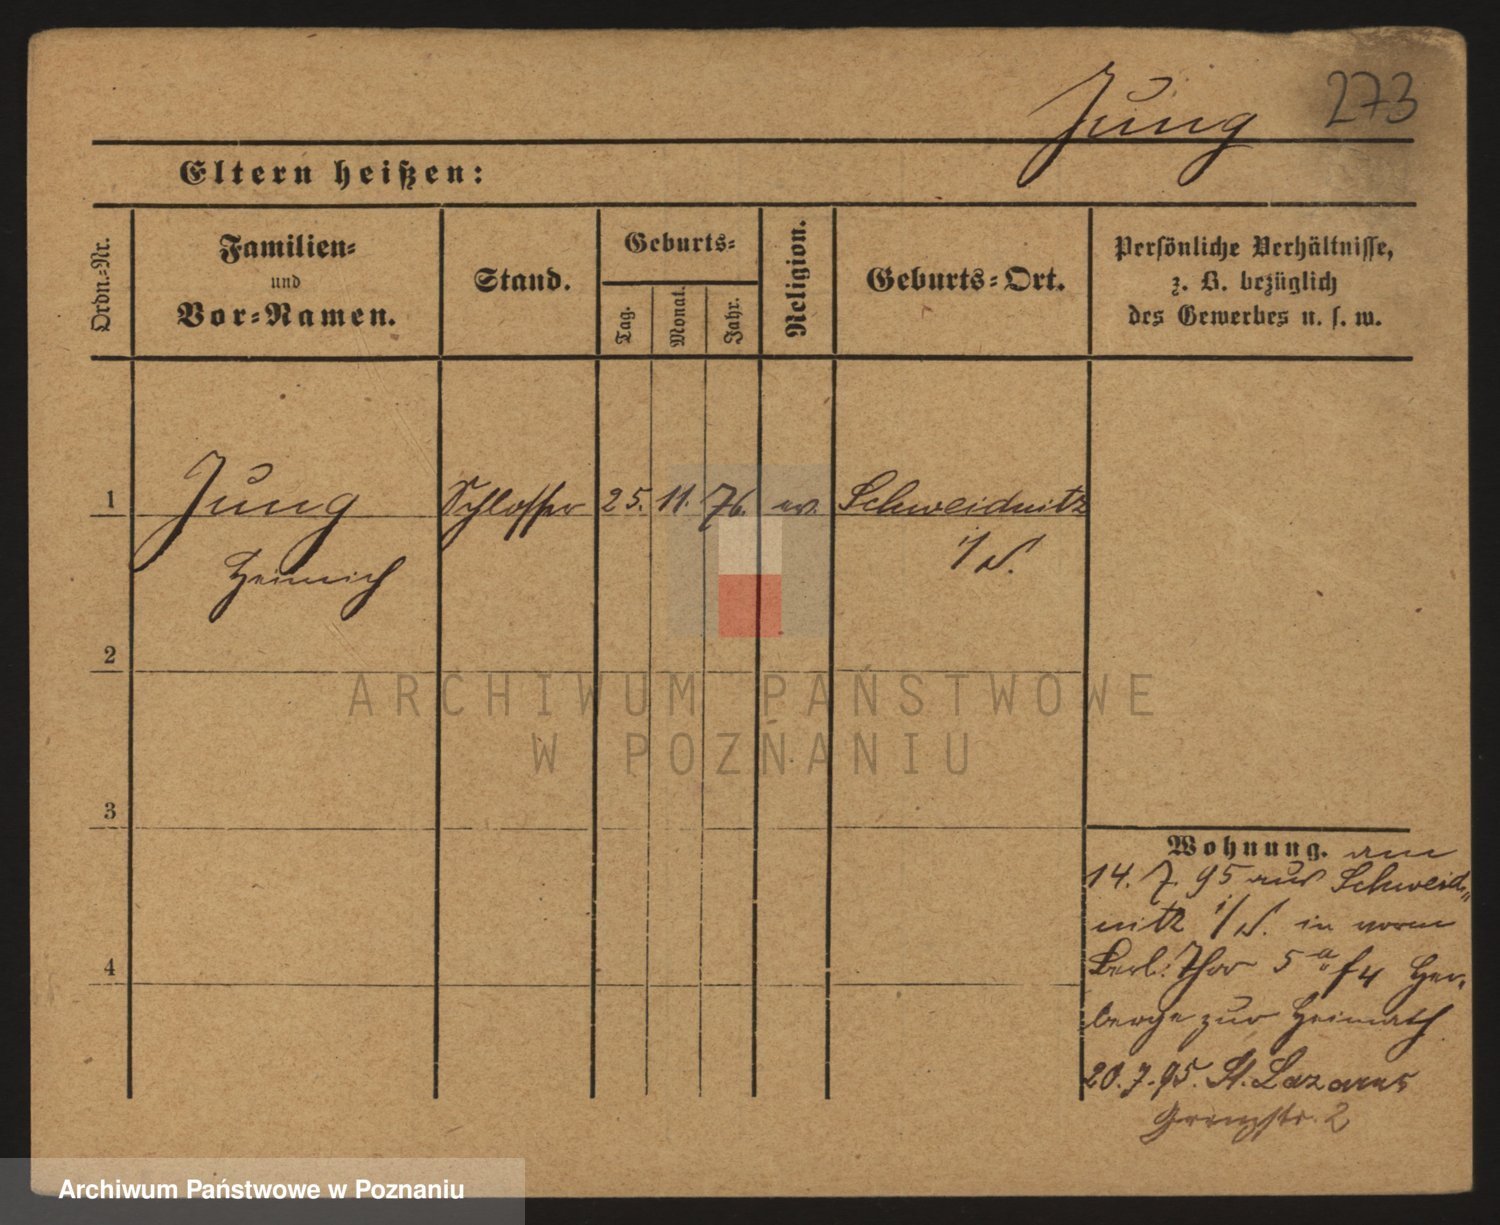 Jung 273
Eltern heißen:
Ordn.=Nr.
Familien=
und
Vor=Namen.
Stand.
Geburts=
Tag.
Monat.
Jahr.
Religion.
Geburts=Ort.
Persönliche Verhältnisse,
z. B. bezüglich
des Gewerbes u. s. w.
1 Jung Schlosser 25. 11. 76. ev. Schweidnitz
Heinrich
2
3
4
Wohnung. am
14. 7. 95 aus Schweid„
nitz in vorm
Berl. Thor 5 a Her„
berge zur Heimath
20.7.95. St. Lazarus
2
ARCHIWUM PAŃSTWOWE
W POZNANIU
Archiwum Państwowe w Poznaniu